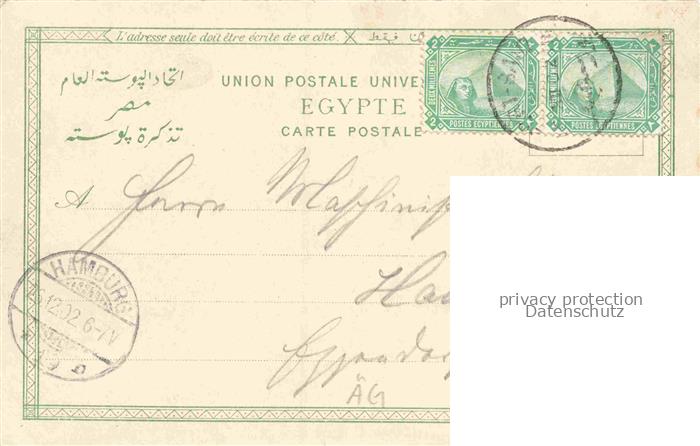 L'adresse seule doit être écrite de ce côté.
اتحاد البوسته العام
مصر
تذكرة بوسته
UNION POSTALE UNIVE
EGYPTE
CARTE POSTALE
2 2
DEUX MILLIEMES
POSTES EGYPTIENNES
POSTES EGYPTIENNES
A Herrn Maschinist
Ha
Eppendor
ÄG
HAMBURG
12.02 6-7V
privacy protection
Datenschutz